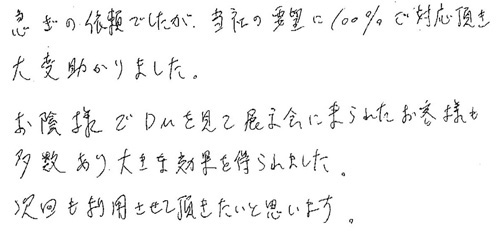 急ぎの依頼でしたが、当社の要望に100%で対応頂き
大変助かりました。
お陰様でDMを見て展示会に来られたお客様も
多数あり、大きな効果を得られました。
次回も利用させて頂きたいと思います。